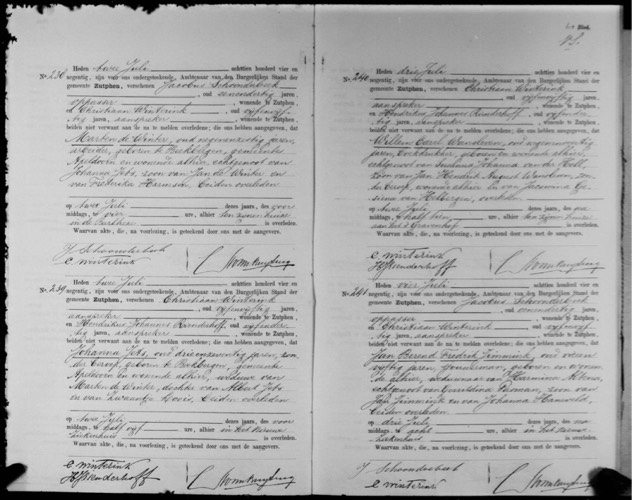 Blad.
Heden twee Juli achttien honderd vier en
negentig, zijn voor ons ondergeteekende, Ambtenaar van den Burgerlijken Stand der
gemeente Zutphen, verschenen Jacobus Schoonderbeek
oppasser, oud jaren,
wonende te Zutphen,
& Christiaan Winterink, oud vijfenvijf
tig jaren, aanspreker, wonende te Zutphen,
beiden niet verwant aan de na te melden overledene; die ons hebben aangegeven, dat
Marten de Winter, oud jaren,
arbeider, geboren te Beekbergen, gemeente
Apeldoorn en wonende alhier, echtgenoot van
Johanna Jebs, zoon van Jan de Winter en
van Frederika Harmsen, beiden overleden
op twee Juli dezes jaars, des voor
middags, te vier ure, alhier ten zijnen huize
in de is overleden.
Waarvan akte, die, na voorlezing, is geteekend door ons met de aangevers.
J Schoonderbeek
C winterink
No. 239 Heden twee Juli achttien honderd vier en
negentig, zijn voor ons ondergeteekende, Ambtenaar van den Burgerlijken Stand der
gemeente Zutphen, verschenen Christiaan Winterink
oud vijfenvijftig jaren,
aanspreker, wonende te Zutphen,
en Hendrikus Johannes
tig jaren, aanspreker, wonende te Zutphen,
beiden niet verwant aan de na te melden overledene; die ons hebben aangegeven, dat
Johanna Jebs, oud jaren, zon
der beroep, geboren te Beekbergen, gemeente
Apeldoorn en wonende alhier, weduwe van
Marten de Winter, dochter van Albert Jebs
en van beiden overleden
op twee Juli dezes jaars, des voor
middags, te half vijf ure, alhier in het Nieuwe
Ziekenhuis is overleden.
Waarvan akte, die, na voorlezing, is geteekend door ons met de aangevers.
C winterink
No. 240 Heden drie Juli achttien honderd vier en
negentig, zijn voor ons ondergeteekende, Ambtenaar van den Burgerlijken Stand der
gemeente Zutphen, verschenen Christiaan Winterink
oud vijfenvijftig jaren,
aanspreker, wonende te Zutphen,
en Hendrikus Johannes
tig jaren, aanspreker, wonende te Zutphen,
beiden niet verwant aan de na te melden overledene; die ons hebben aangegeven, dat
Willem Carel oud
jaren, boekdrukker, geboren en wonende alhier,
echtgenoot van Susanna Johanna van der Holl,
zoon van Jan Hendrik August zon
der beroep, wonende alhier en van Jacomina Ge
sina van overleden
op twee Juli dezes jaars, des na
middags, te half tien ure, alhier ten zijnen huize
aan het 's Gravenhof is overleden.
Waarvan akte, die, na voorlezing, is geteekend door ons met de aangevers.
C winterink
No. 241 Heden vier Juli achttien honderd vier en
negentig, zijn voor ons ondergeteekende, Ambtenaar van den Burgerlijken Stand der
gemeente Zutphen, verschenen Jacobus Schoonderbeek
oud jaren,
oppasser, wonende te Zutphen,
& Christiaan Winterink, oud vijfenvijf
tig jaren, aanspreker, wonende te Zutphen,
beiden niet verwant aan de na te melden overledene; die ons hebben aangegeven, dat
Jan Berend Fredrik oud vier en
vijftig jaren, geboren en wonen
de alhier, weduwnaar van Harmina
echtgenoot van zoon van
Jan en van Johanna
beiden overleden
op drie Juli dezes jaars, des na
middags, te acht ure, alhier in het Nieuwe
Ziekenhuis is overleden.
Waarvan akte, die, na voorlezing, is geteekend door ons met de aangevers.
J Schoonderbeek
C winterink